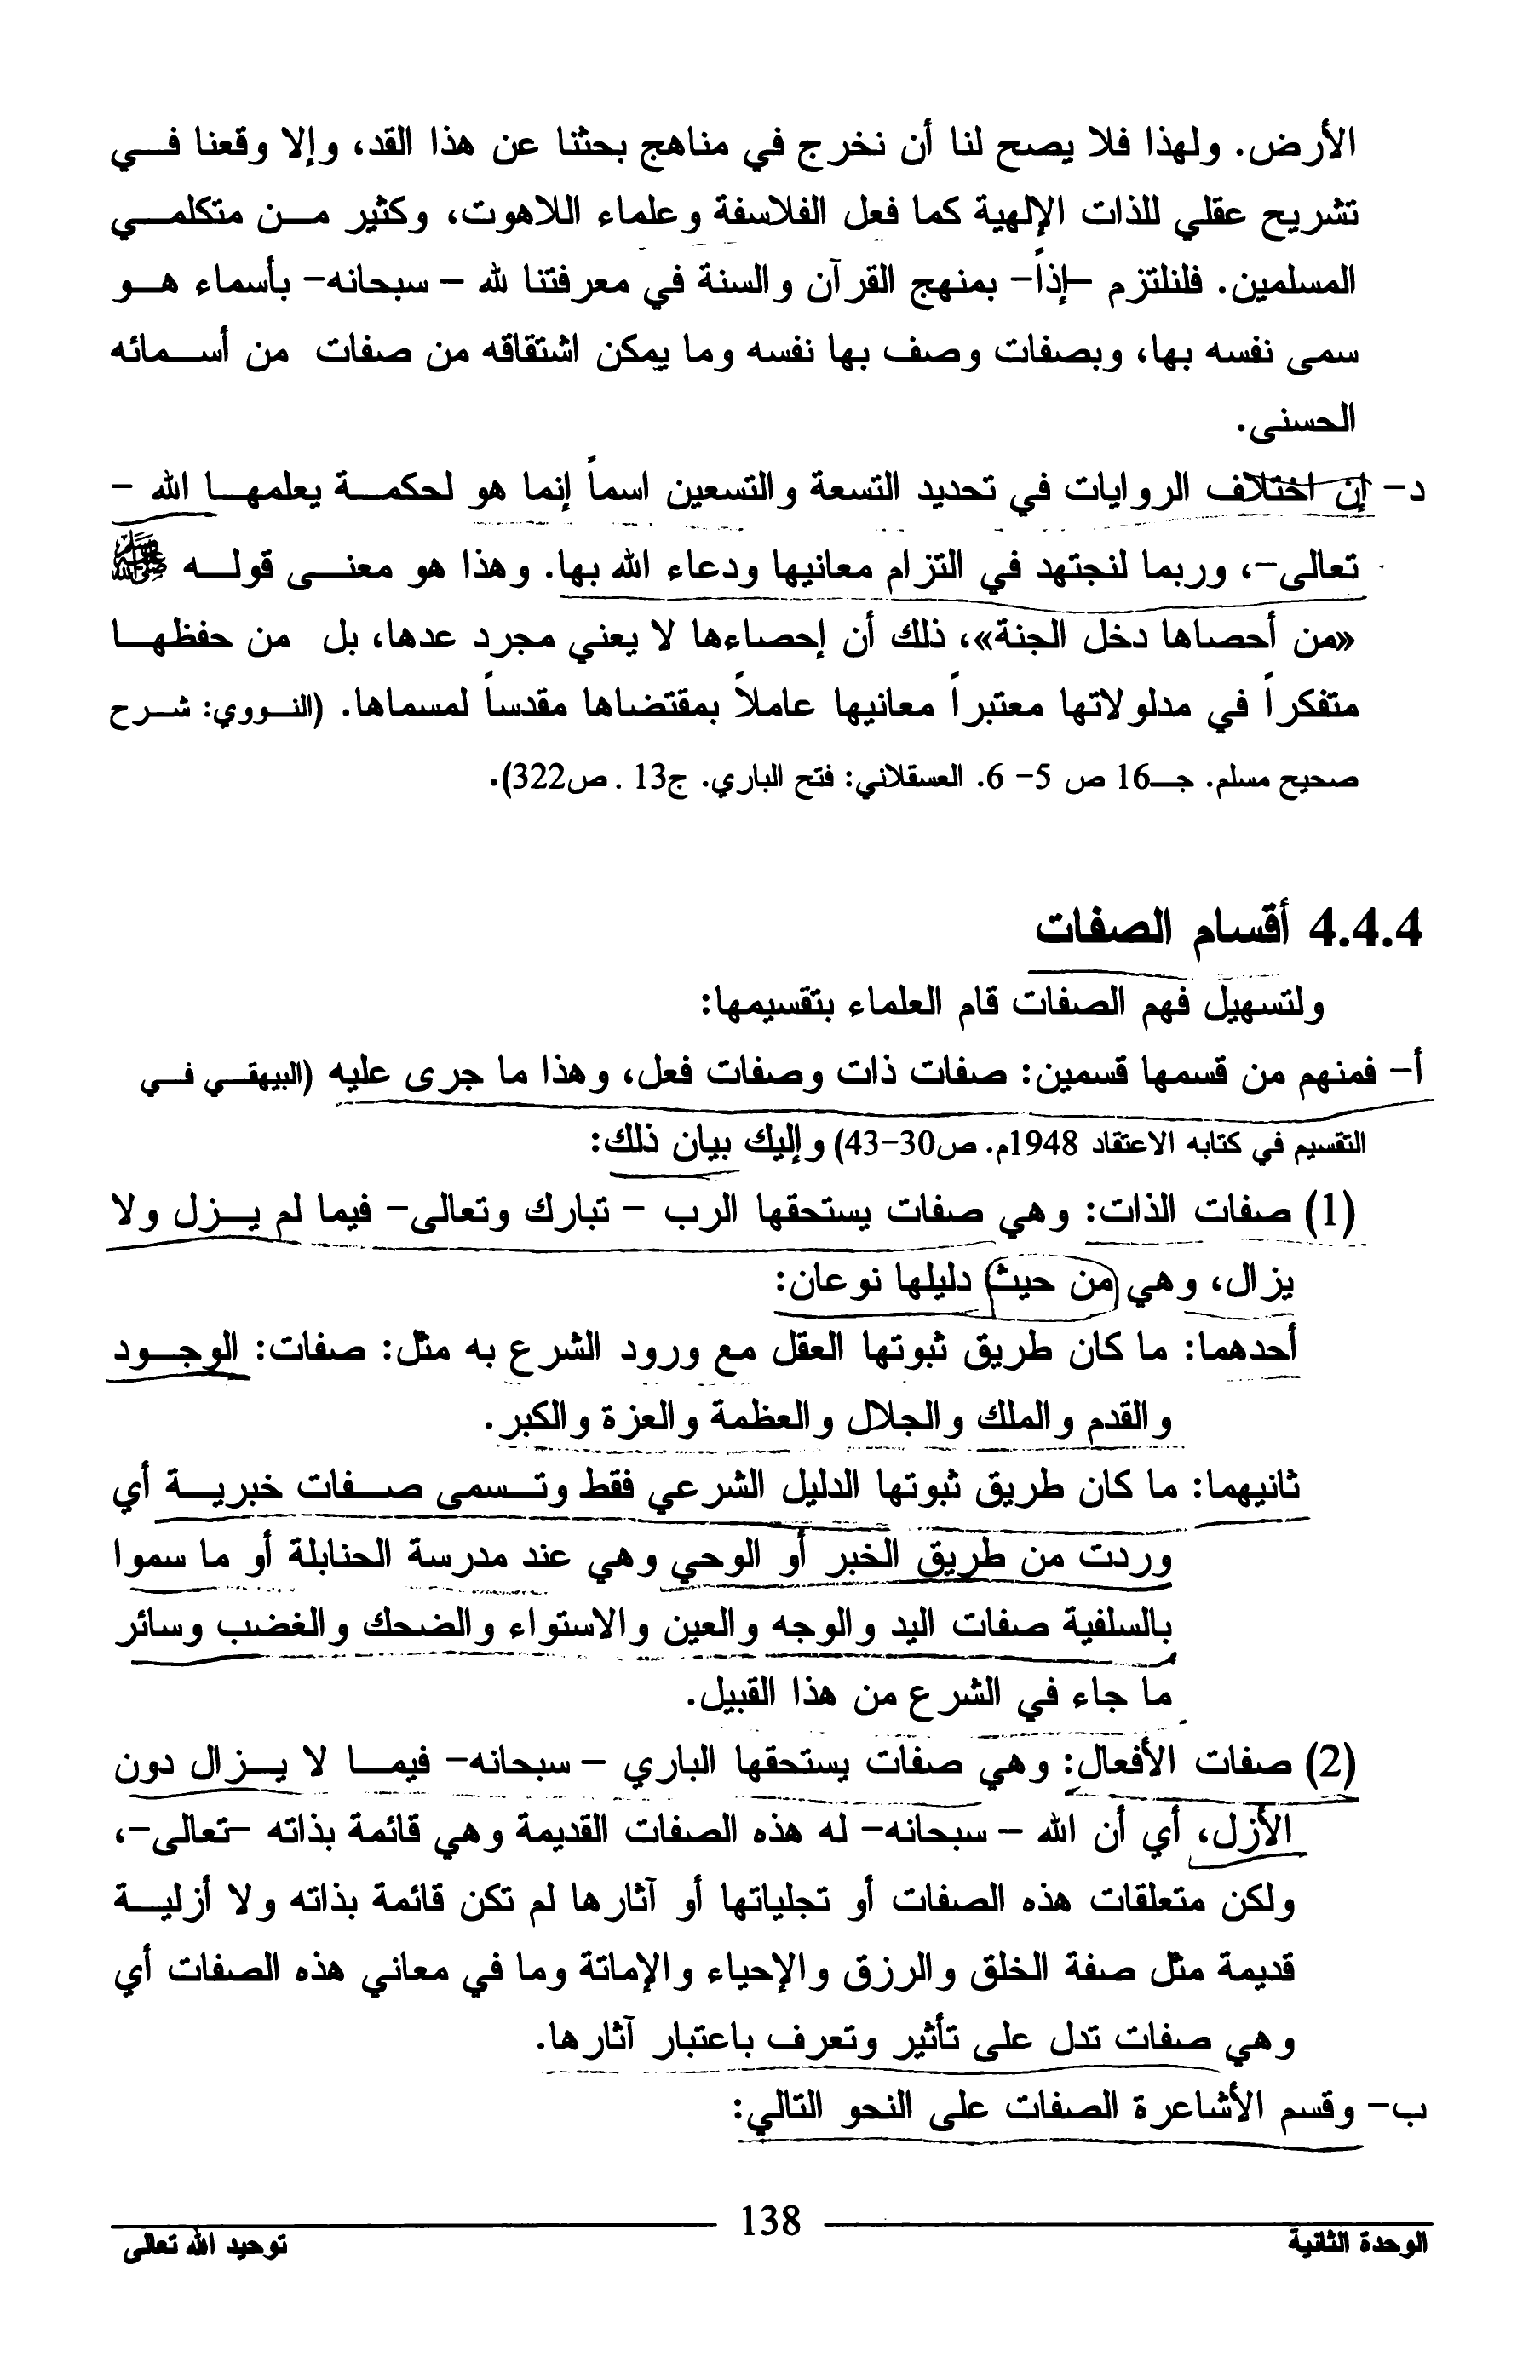 الأرض. ولهذا فلا يصح لنا أن نخرج في مناهج بحثنا عن هذا القد، وإلا وقعنا فـي
تشريح عقلي للذات الإلهية كما فعل الفلاسفة وعلماء اللاهوت، وكثير مـن متكلمـي
المسلمين. فلنلتزم –إذاً– بمنهج القرآن والسنة في معرفتنا لله – سبحانه– بأسماء هـو
سمى نفسه بها، وبصفات وصف بها نفسه وما يمكن اشتقاقه من صفات من أسـمائه
الحسنى.
د– إن اختلاف الروايات في تحديد التسعة والتسعين اسماً إنما هو لحكمـة يعلمهـا الله –
تعالى–، وربما لنجتهد في التزام معانيها ودعاء الله بها. وهذا هو معنـى قولـه ﷺ
«من أحصاها دخل الجنة»، ذلك أن إحصاءها لا يعني مجرد عدها، بل من حفظهـا
متفكراً في مدلولاتها معتبراً معانيها عاملاً بمقتضاها مقدساً لمسماها. (النـووي: شـرح
صحيح مسلم. جـ16 ص 5– 6. العسقلاني: فتح الباري. ج13 . ص322).
4.4.4 أقسام الصفات
ولتسهيل فهم الصفات قام العلماء بتقسيمها:
أ– فمنهم من قسمها قسمين: صفات ذات وصفات فعل، وهذا ما جرى عليه (البيهقـي فـي
التقسيم في كتابه الاعتقاد 1948م. ص30–43) وإليك بيان ذلك:
(1) صفات الذات: وهي صفات يستحقها الرب – تبارك وتعالى– فيما لم يـزل ولا
يزال، وهي من حيث دليلها نوعان:
أحدهما: ما كان طريق ثبوتها العقل مع ورود الشرع به مثل: صفات: الوجـود
والقدم والملك والجلال والعظمة والعزة والكبر.
ثانيهما: ما كان طريق ثبوتها الدليل الشرعي فقط وتـسمى صـفات خبريـة أي
وردت من طريق الخبر أو الوحي وهي عند مدرسة الحنابلة أو ما سموا
بالسلفية صفات اليد والوجه والعين والاستواء والضحك والغضب وسائر
ما جاء في الشرع من هذا القبيل.
(2) صفات الأفعال: وهي صفات يستحقها الباري – سبحانه– فيمـا لا يـزال دون
الأزل، أي أن الله – سبحانه– له هذه الصفات القديمة وهي قائمة بذاته –تعالى–،
ولكن متعلقات هذه الصفات أو تجلياتها أو آثارها لم تكن قائمة بذاته ولا أزليـة
قديمة مثل صفة الخلق والرزق والإحياء والإماتة وما في معاني هذه الصفات أي
وهي صفات تدل على تأثير وتعرف باعتبار آثارها.
ب– وقسم الأشاعرة الصفات على النحو التالي:
الوحدة الثانية 138 توحيد الله تعالى